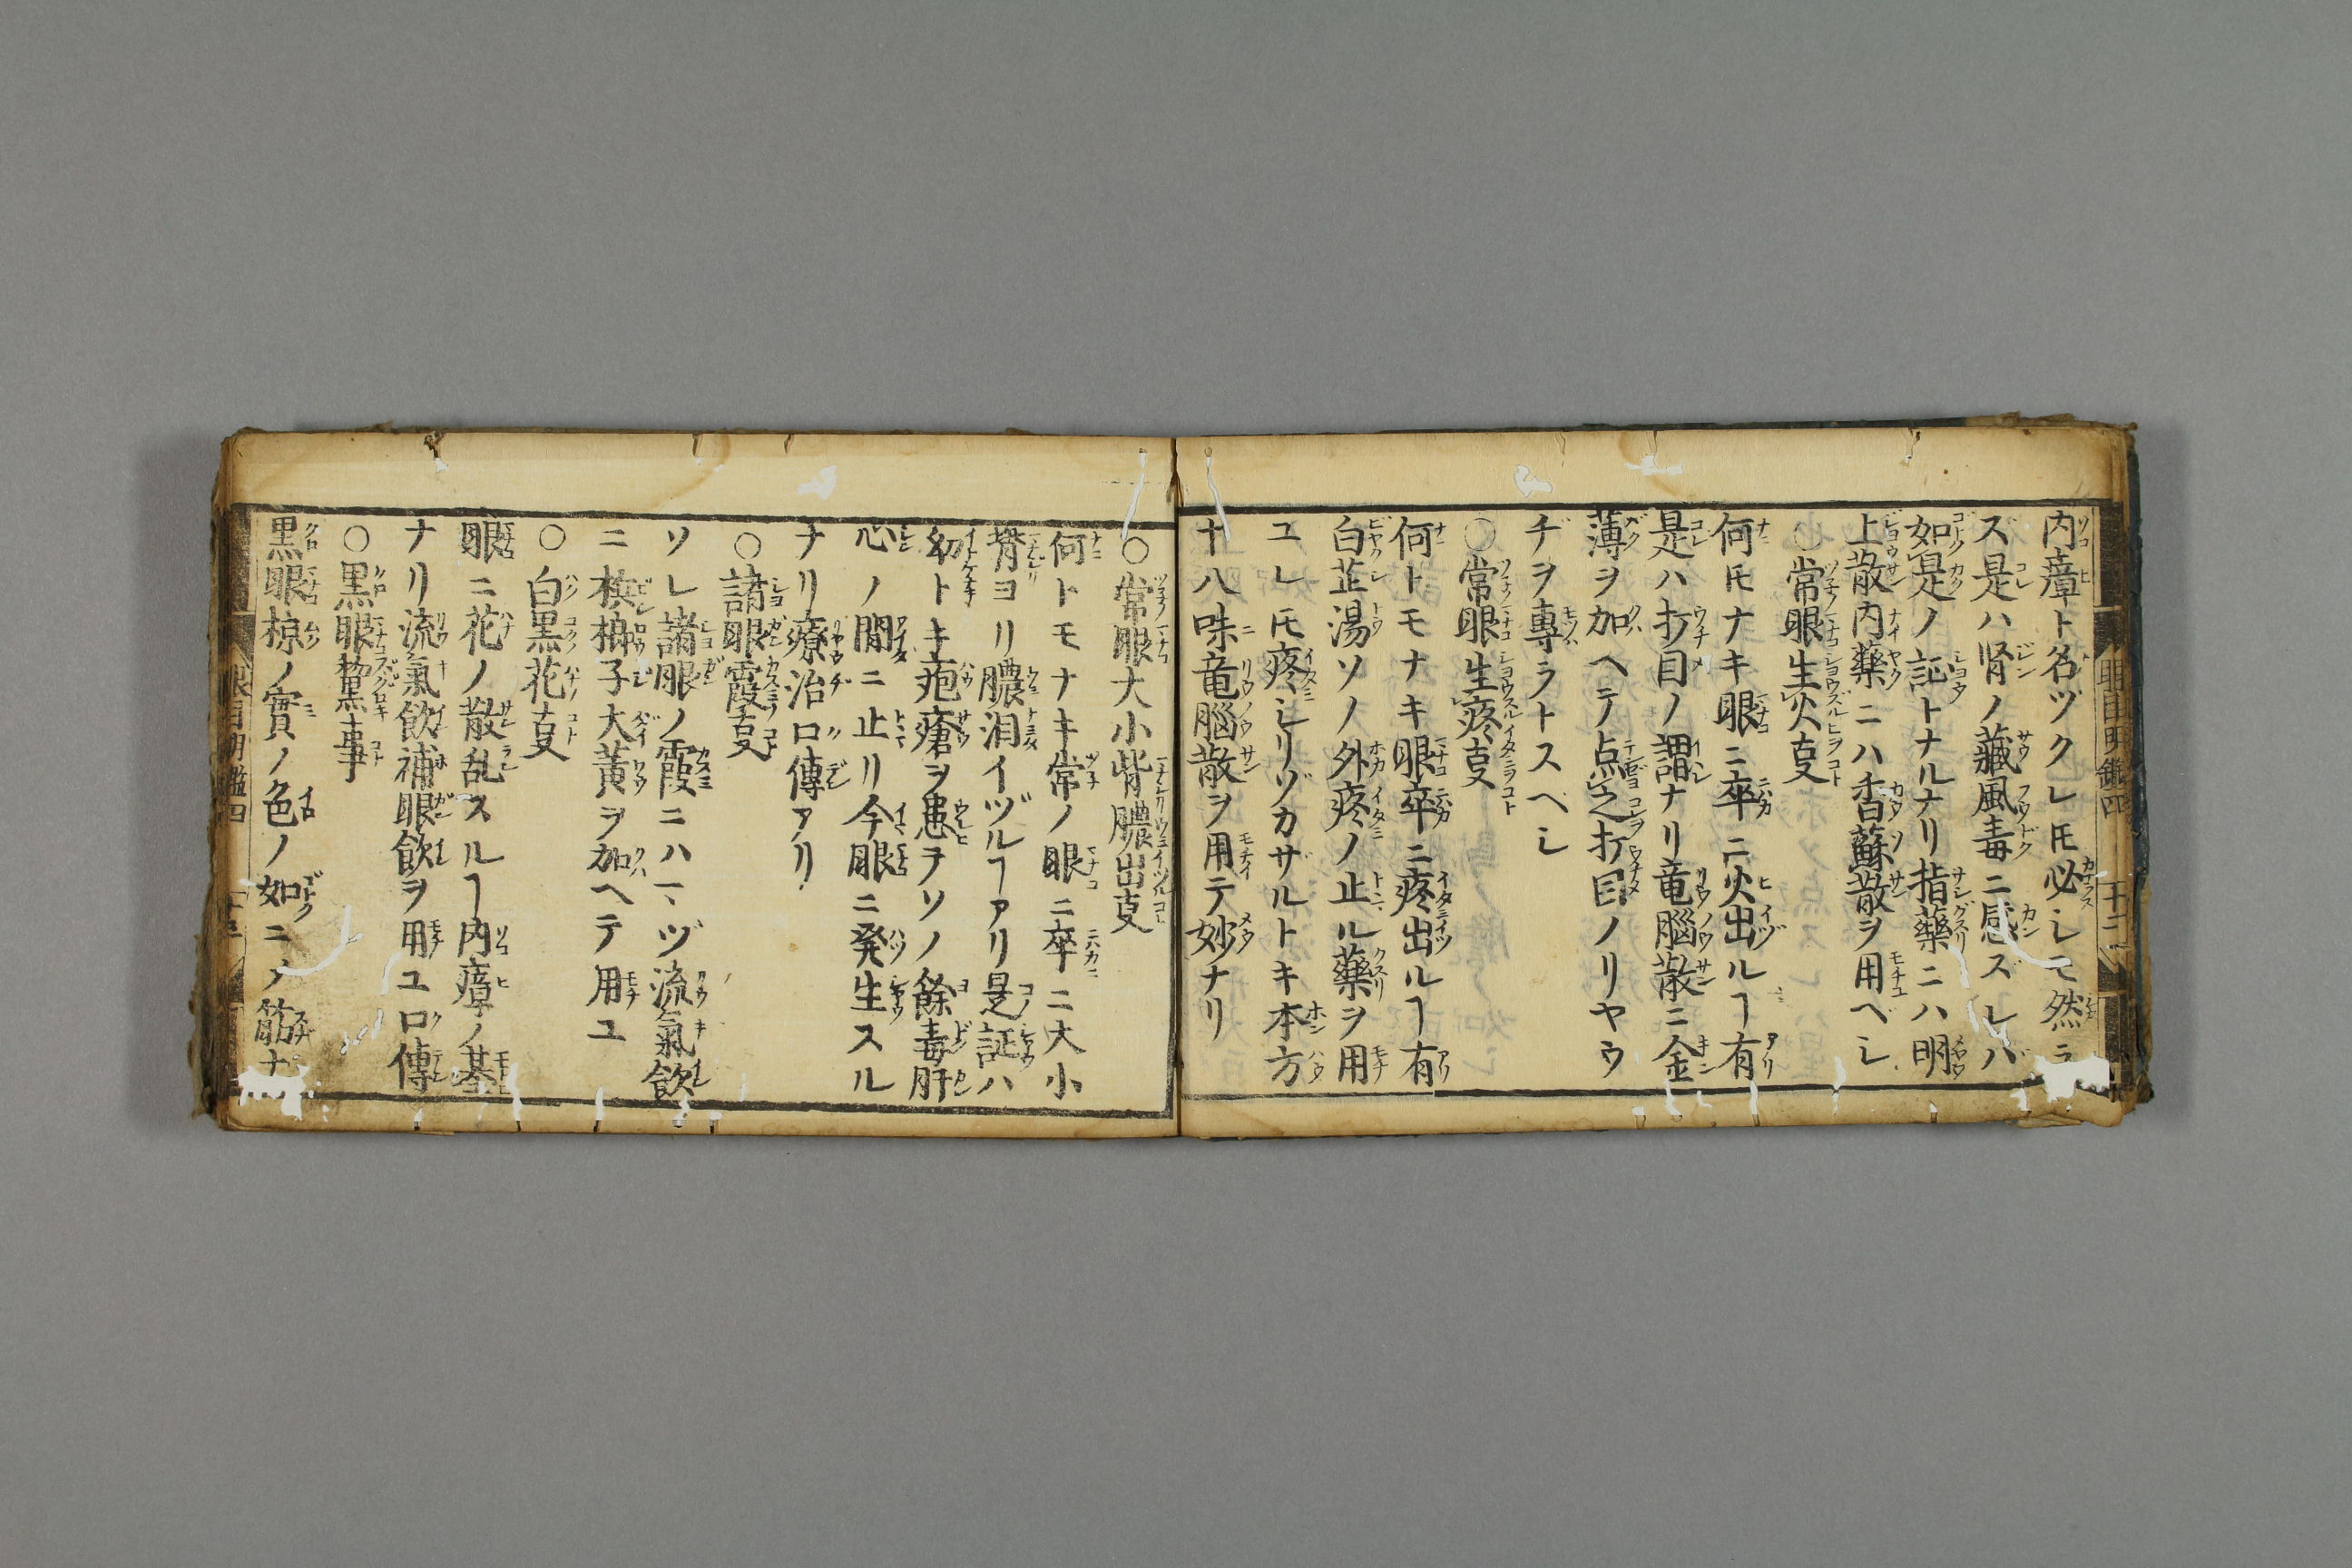 内瘴ト名ヅクレ𪜈必シモ然ラ
ズ是ハ肾ノ藏風毒ニ感ズレバ
如是ノ証トナルナリ指藥ニハ明
上散内藥ニハ香蘇散ヲ用ベシ
○常眼生火㕝
何𪜈ナキ眼ニ卒ニ火出ルヿ有
是ハ打目ノ謂ナリ竜腦散ニ金
薄ヲ加ヘテ点之打目ノリヤウ
ヂヲ專ラトスベシ
○常眼生疼㕝
何トモナキ眼卒ニ疼出ルヿ有
白芷湯ソノ外疼ノ止ル藥ヲ用
ユレ𪜈疼シリゾカザルトキ本方
十八味竜腦散ヲ用テ妙ナリ
○常眼大小眥膿出㕝
何トモナキ常ノ眼ニ卒ニ大小
眥ヨリ膿泪イヅルヿアリ是証ハ
幼トキ疱瘡ヲ患ヲソノ餘毒肝
心ノ間ニ止リ今眼ニ発生スル
ナリ療治口傳アリ
○諸眼霞㕝
ソレ諸眼ノ霞ニハマヅ流氣飲
ニ梹榔子大黄ヲ加ヘテ用ユ
○白黒花㕝
眼ニ花ノ散乱スルヿ内瘴ノ基
ナリ流氣飲補眼飲ヲ用ユ口傳
○黒眼黧事
黒眼椋ノ實ノ色ノ如ニメ筋ナ
眼目明鑑四
十二
眼目明鑑四